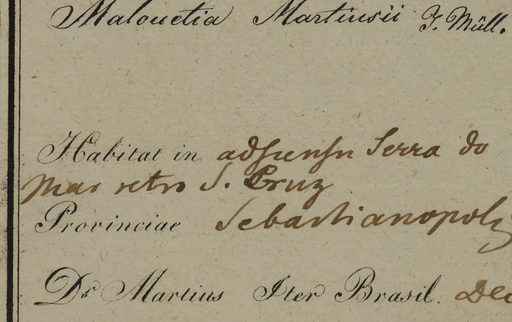 Malouetia Martiusii J. Müll.
Habitat in adscensu Serra do
Mar retro S. Cruz
Provinciae Sebastianopoli
Dr Martius Iter Brasil. Dec